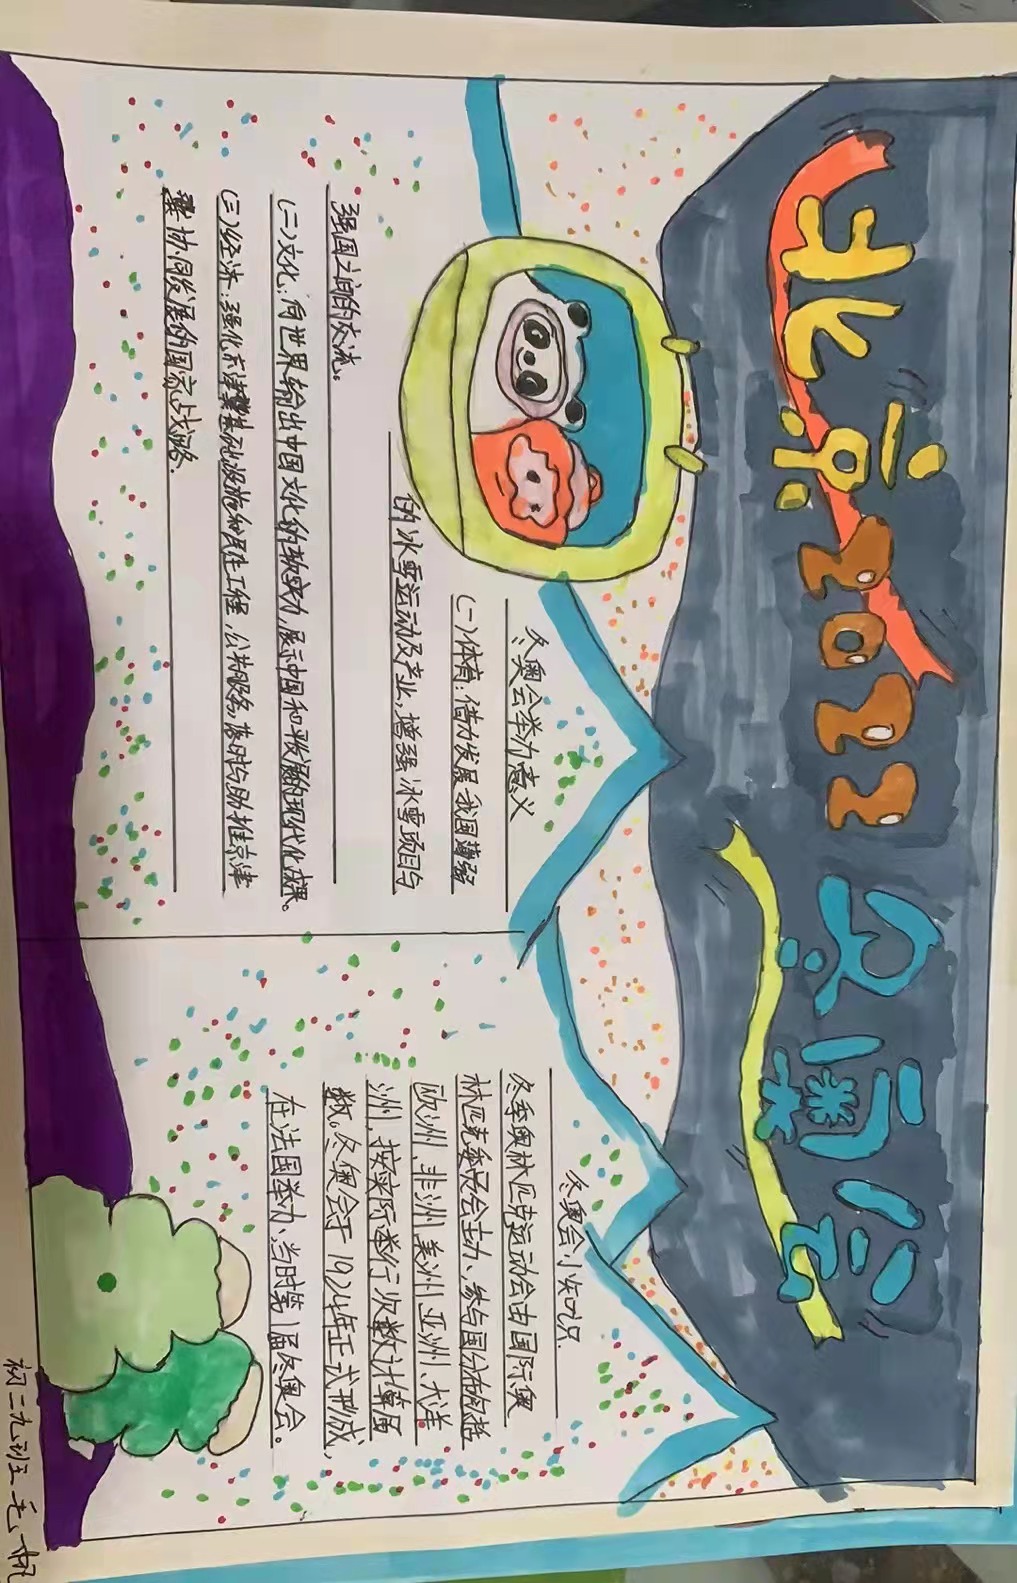 北京2022冬奥会
冬奥会举办意义
(一)体育:借力发展我国薄弱
的冰雪运动及产业,增强冰雪项目与
强国之间的交流。
(二)文化:向世界输出中国文化的软实力,展示中国和平发展的现代化成果。
(三)经济:强化京津冀基础设施和民生工程,公共服务,落时与助推京津
冀协同发展的国家战略.
冬奥会小知识.
冬季奥林匹克运动会由国际奥
林匹克委员会主办、参与国分布包括
欧洲、非洲、美洲、亚洲、大洋
洲,按实际举行次数计算届
数。冬奥会于1924年正式形成,
在法国举办、当时第1届冬奥会。
初二九班 毛一帆